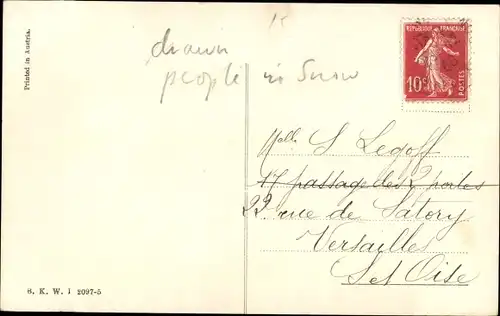 15
drawn
people in Snow
Printed in Austria.
REPUBLIQUE FRANÇAISE
10c
POSTES
Melle S Legoff
17 passage des 2 portes
22 rue de Satory
Versailles
S et Oise
B. K. W. I 2097-5